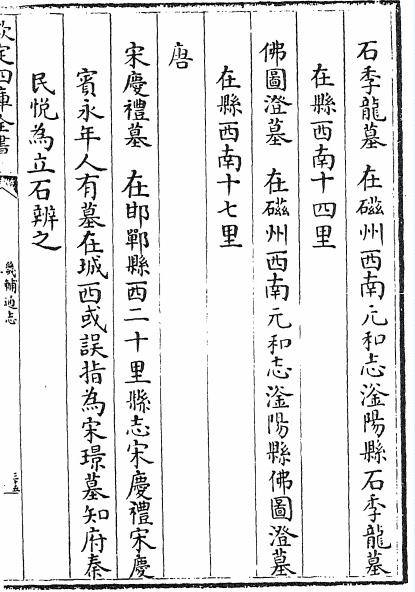 石季龍墓 在磁州西南元和志滏陽縣石季龍墓
在縣西南十四里
佛圖澄墓 在磁州西南元和志滏陽縣佛圖澄墓
在縣西南十七里
唐
宋慶禮墓 在邯鄲縣西二十里縣志宋慶禮宋慶
賓永年人有墓在城西或誤指為宋璟墓知府秦
民悦為立石辨之
欽定四庫全書
畿輔通志
三十五